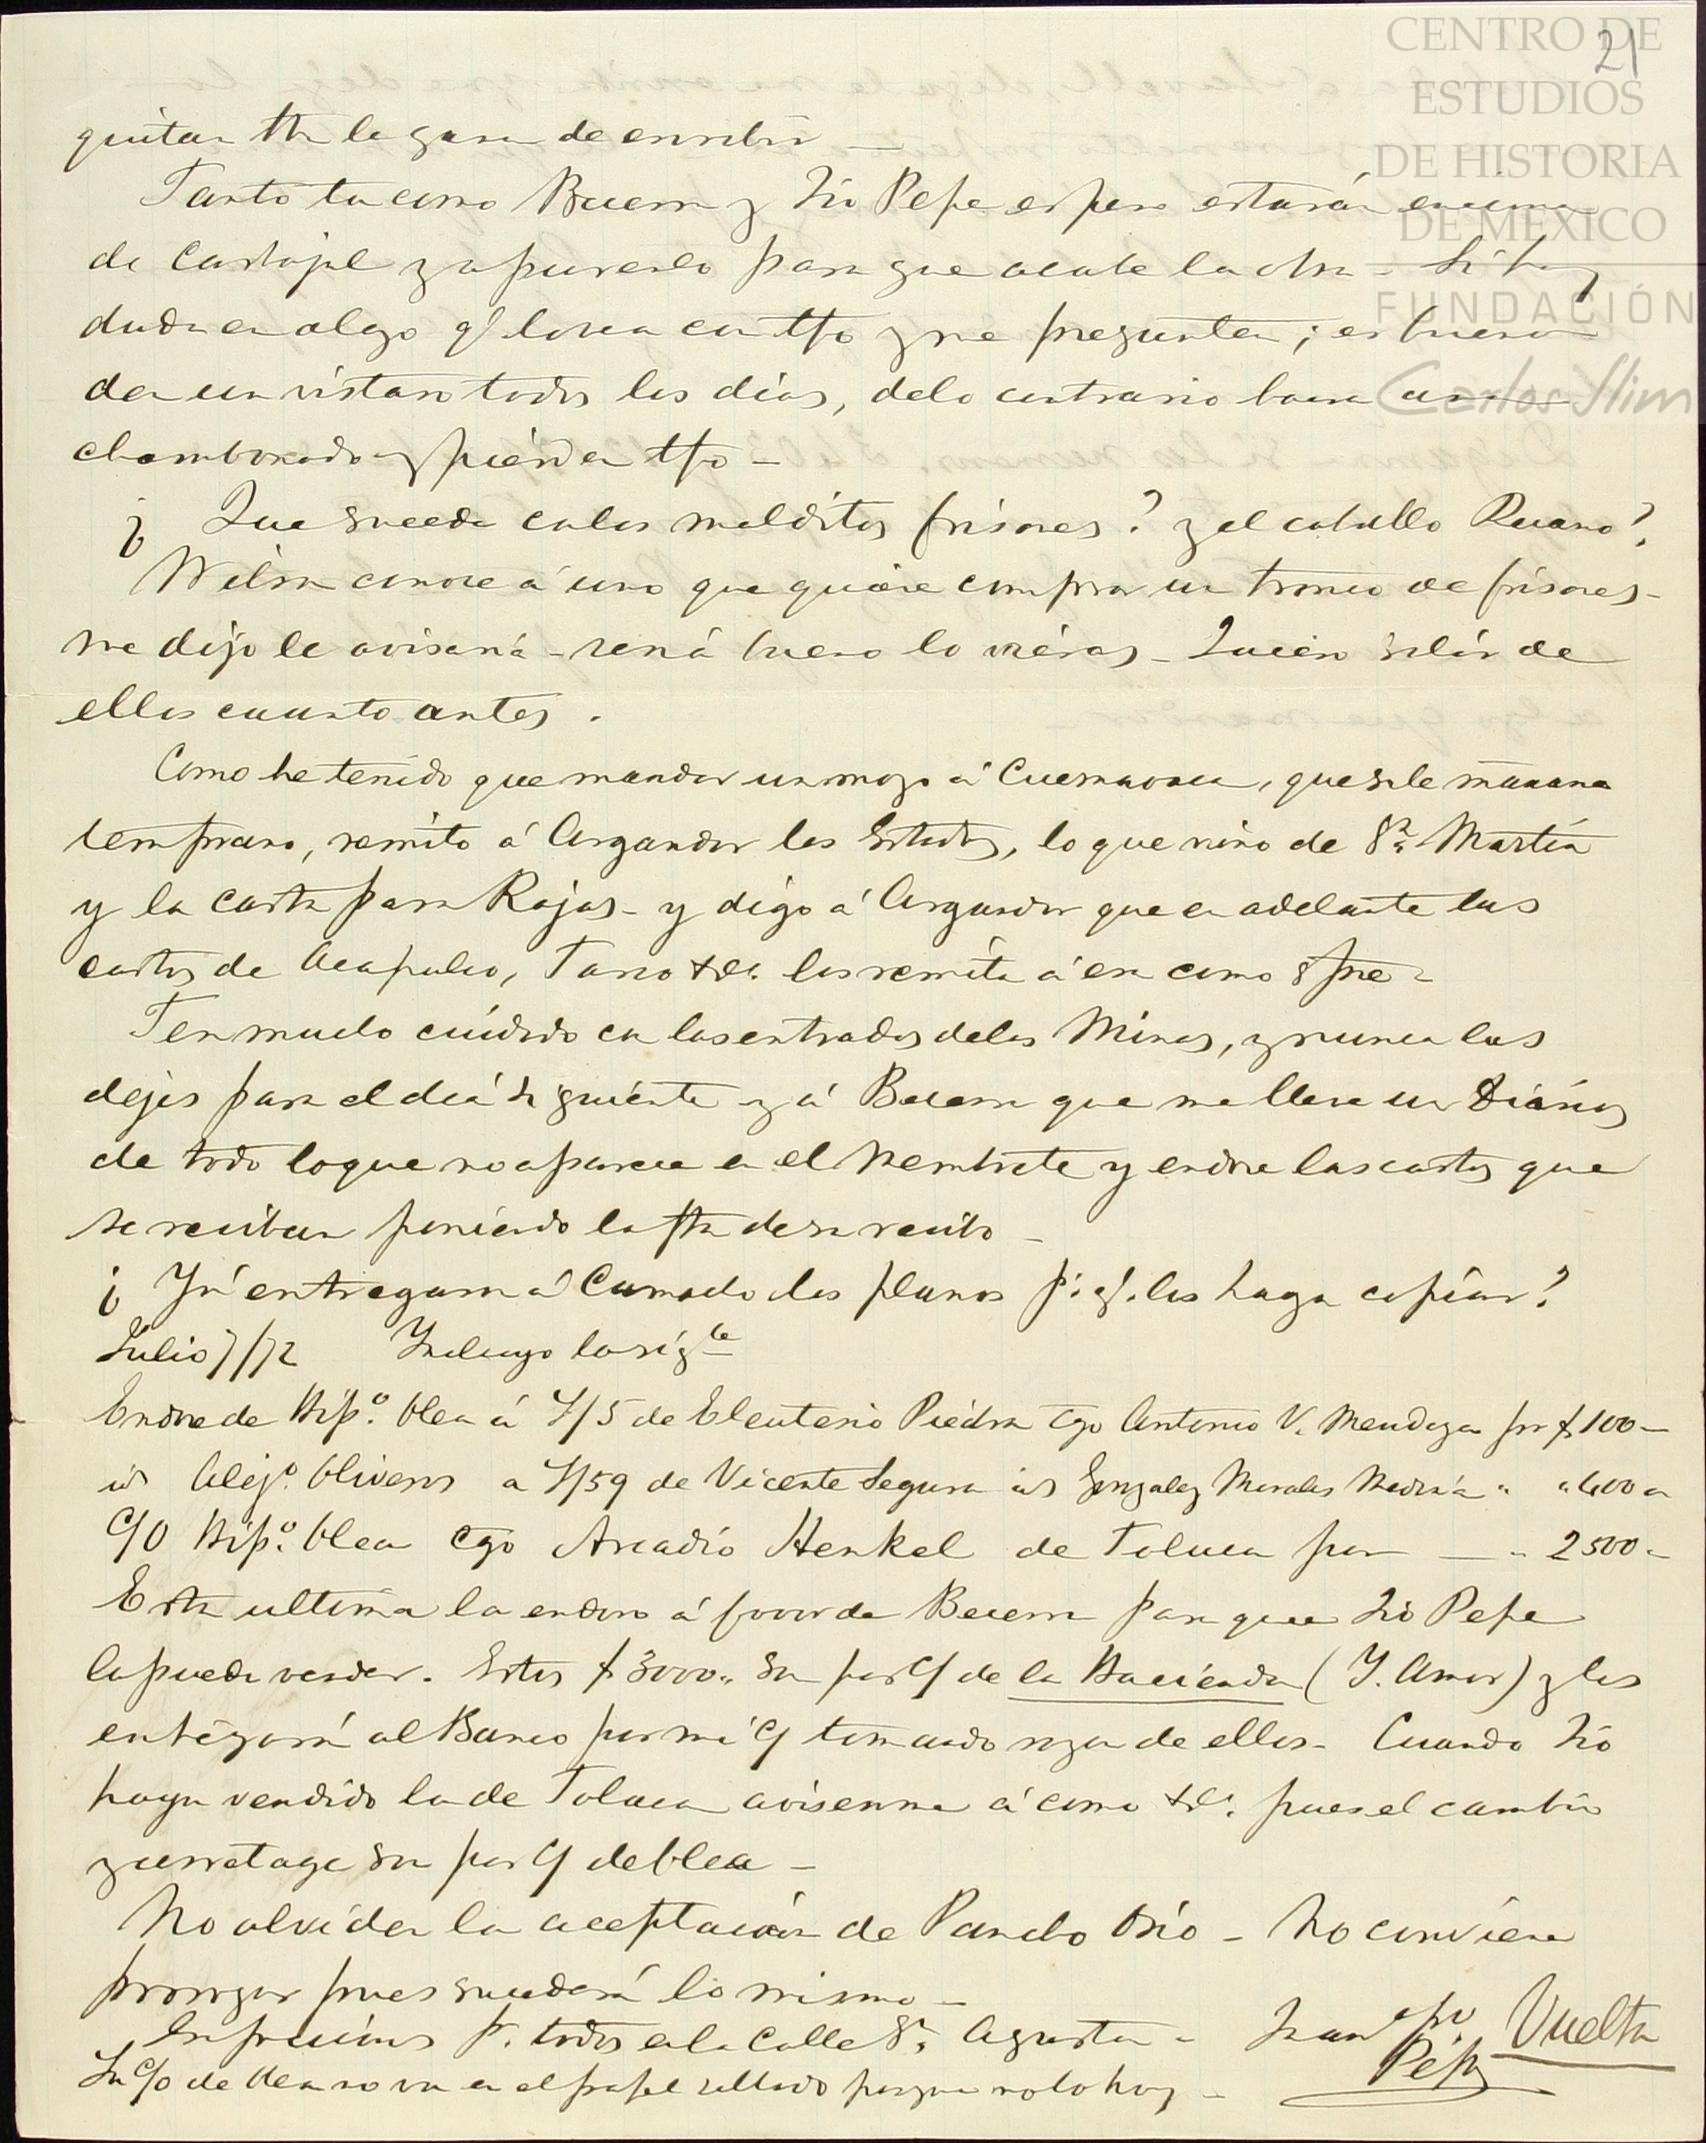 CENTRO DE
ESTUDIOS
DE HISTORIA
DE MÉXICO
FUNDACIÓN
Carlos Slim
21
quitan la gana de escribir —
Tanto tu como Becerra y Tio Pepe espero estarán encima
de Carbajal y apurarlo para que acabe la obra — Si hay
duda en algo q/ lo vea con tpo y me pregunten; es bueno
den un vistazo todos los dias, de lo contrario hacen
chamborado y pierden tpo —
¿ Que sucede con los malditos frisones? y el caballo Ruano?
Wilson conoce á uno que quiere comprar un tronco de frisones —
me dijo le avisará — será bueno lo vieras — Quiero salir de
ellos cuanto antes .
Como he tenido que mandar un mozo á Cuernavaca, que sale mañana
temprano, remito á Argandar los Estados, lo que vino de Sn. Martin
y la carta para Rojas — y digo á Argandar que en adelante las
cartas de Acapulco, Taxco &a. las remita á esa como spre —
Ten mucho cuidado en las entradas de las Minas, y nunca las
dejes para el dia siguiente y á Becerra que me lleve un Diario
de todo lo que no aparece en el Membrete y endose las cartas que
se reciban poniendo la fha de su recibo —
¿ Ya entregaron á Cumplido los planos p. q. los haga copiar?
Julio 7/72 Incluyo lo sigte
Endose de Hipo. Olea á L/5 de Eleuterio Piedra cgo Antonio V. Mendoza por $100 —
id Alejo. Oliveros a L/59 de Vicente Segura id Gonzalez Morales Medina " " 400 "
C/O Hipo. Olea cgo Arcadio Henkel de Toluca por — " 2500 "
Esta ultima la endoso á favor de Becerra para que Tio Pepe
la pueda vender. Estos $3000 " son por c/ de la Hacienda (Y. Amor) y los
entregará al Banco por mi c/ tomando razon de ellos — Cuando Tio
haya vendido la de Toluca avisenme á como &a. pues el cambio
y corretage son por c/ de Olea —
No olviden la aceptacion de Pancho Osio — No conviene
prorrogar pues sucederá lo mismo —
Espresiones p. todos en la Calle Sn. Agustin —
Pepe
Vuelta
La c/o de Olea no va en el papel sellado porque no lo hay —